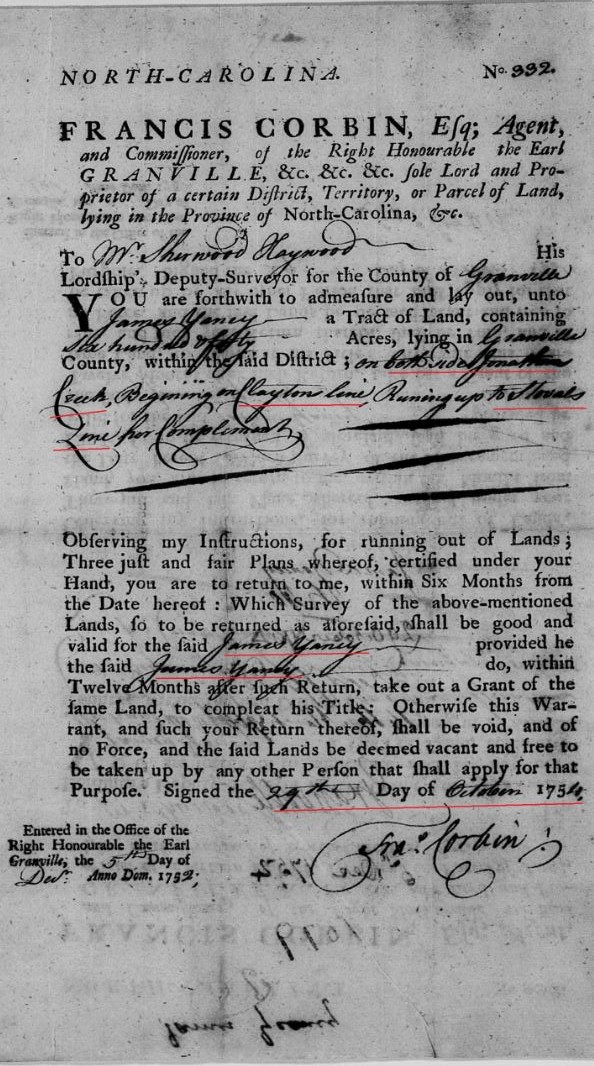 NORTH-CAROLINA. No. 332.
FRANCIS CORBIN, Eſq; Agent,
and Commiſſioner, of the Right Honourable the Earl
GRANVILLE, &c. &c. &c. ſole Lord and Pro-
prietor of a certain Diſtrict, Territory, or Parcel of Land,
lying in the Province of North-Carolina, &c.
To Mr. Sherwood Haywood His
Lordſhip's Deputy-Surveyor for the County of Granville
YOU are forthwith to admeaſure and lay out, unto
James Yancy a Tract of Land, containing
six hundred & fifty Acres, lying in Granville
County, within the ſaid Diſtrict; on both sides Jonathan
Creek, Begining on Claytons line, Runing up to Stovals
Line for Complement
Obſerving my Inſtructions, for running out of Lands;
Three juſt and fair Plans whereof, certified under your
Hand, you are to return to me, within Six Months from
the Date hereof: Which Survey of the above-mentioned
Lands, ſo to be returned as aforeſaid, ſhall be good and
valid for the ſaid James Yancy provided he
the ſaid James Yancy do, within
Twelve Months after ſuch Return, take out a Grant of the
ſame Land, to compleat his Title: Otherwiſe this War-
rant, and ſuch your Return thereof, ſhall be void, and of
no Force, and the ſaid Lands be deemed vacant and free to
be taken up by any other Perſon that ſhall apply for that
Purpoſe. Signed the 29th Day of October 1754.
Fras. Corbin
Entered in the Office of the
Right Honourable the Earl
Granville, the 5th Day of
Decr. Anno Dom. 1752;